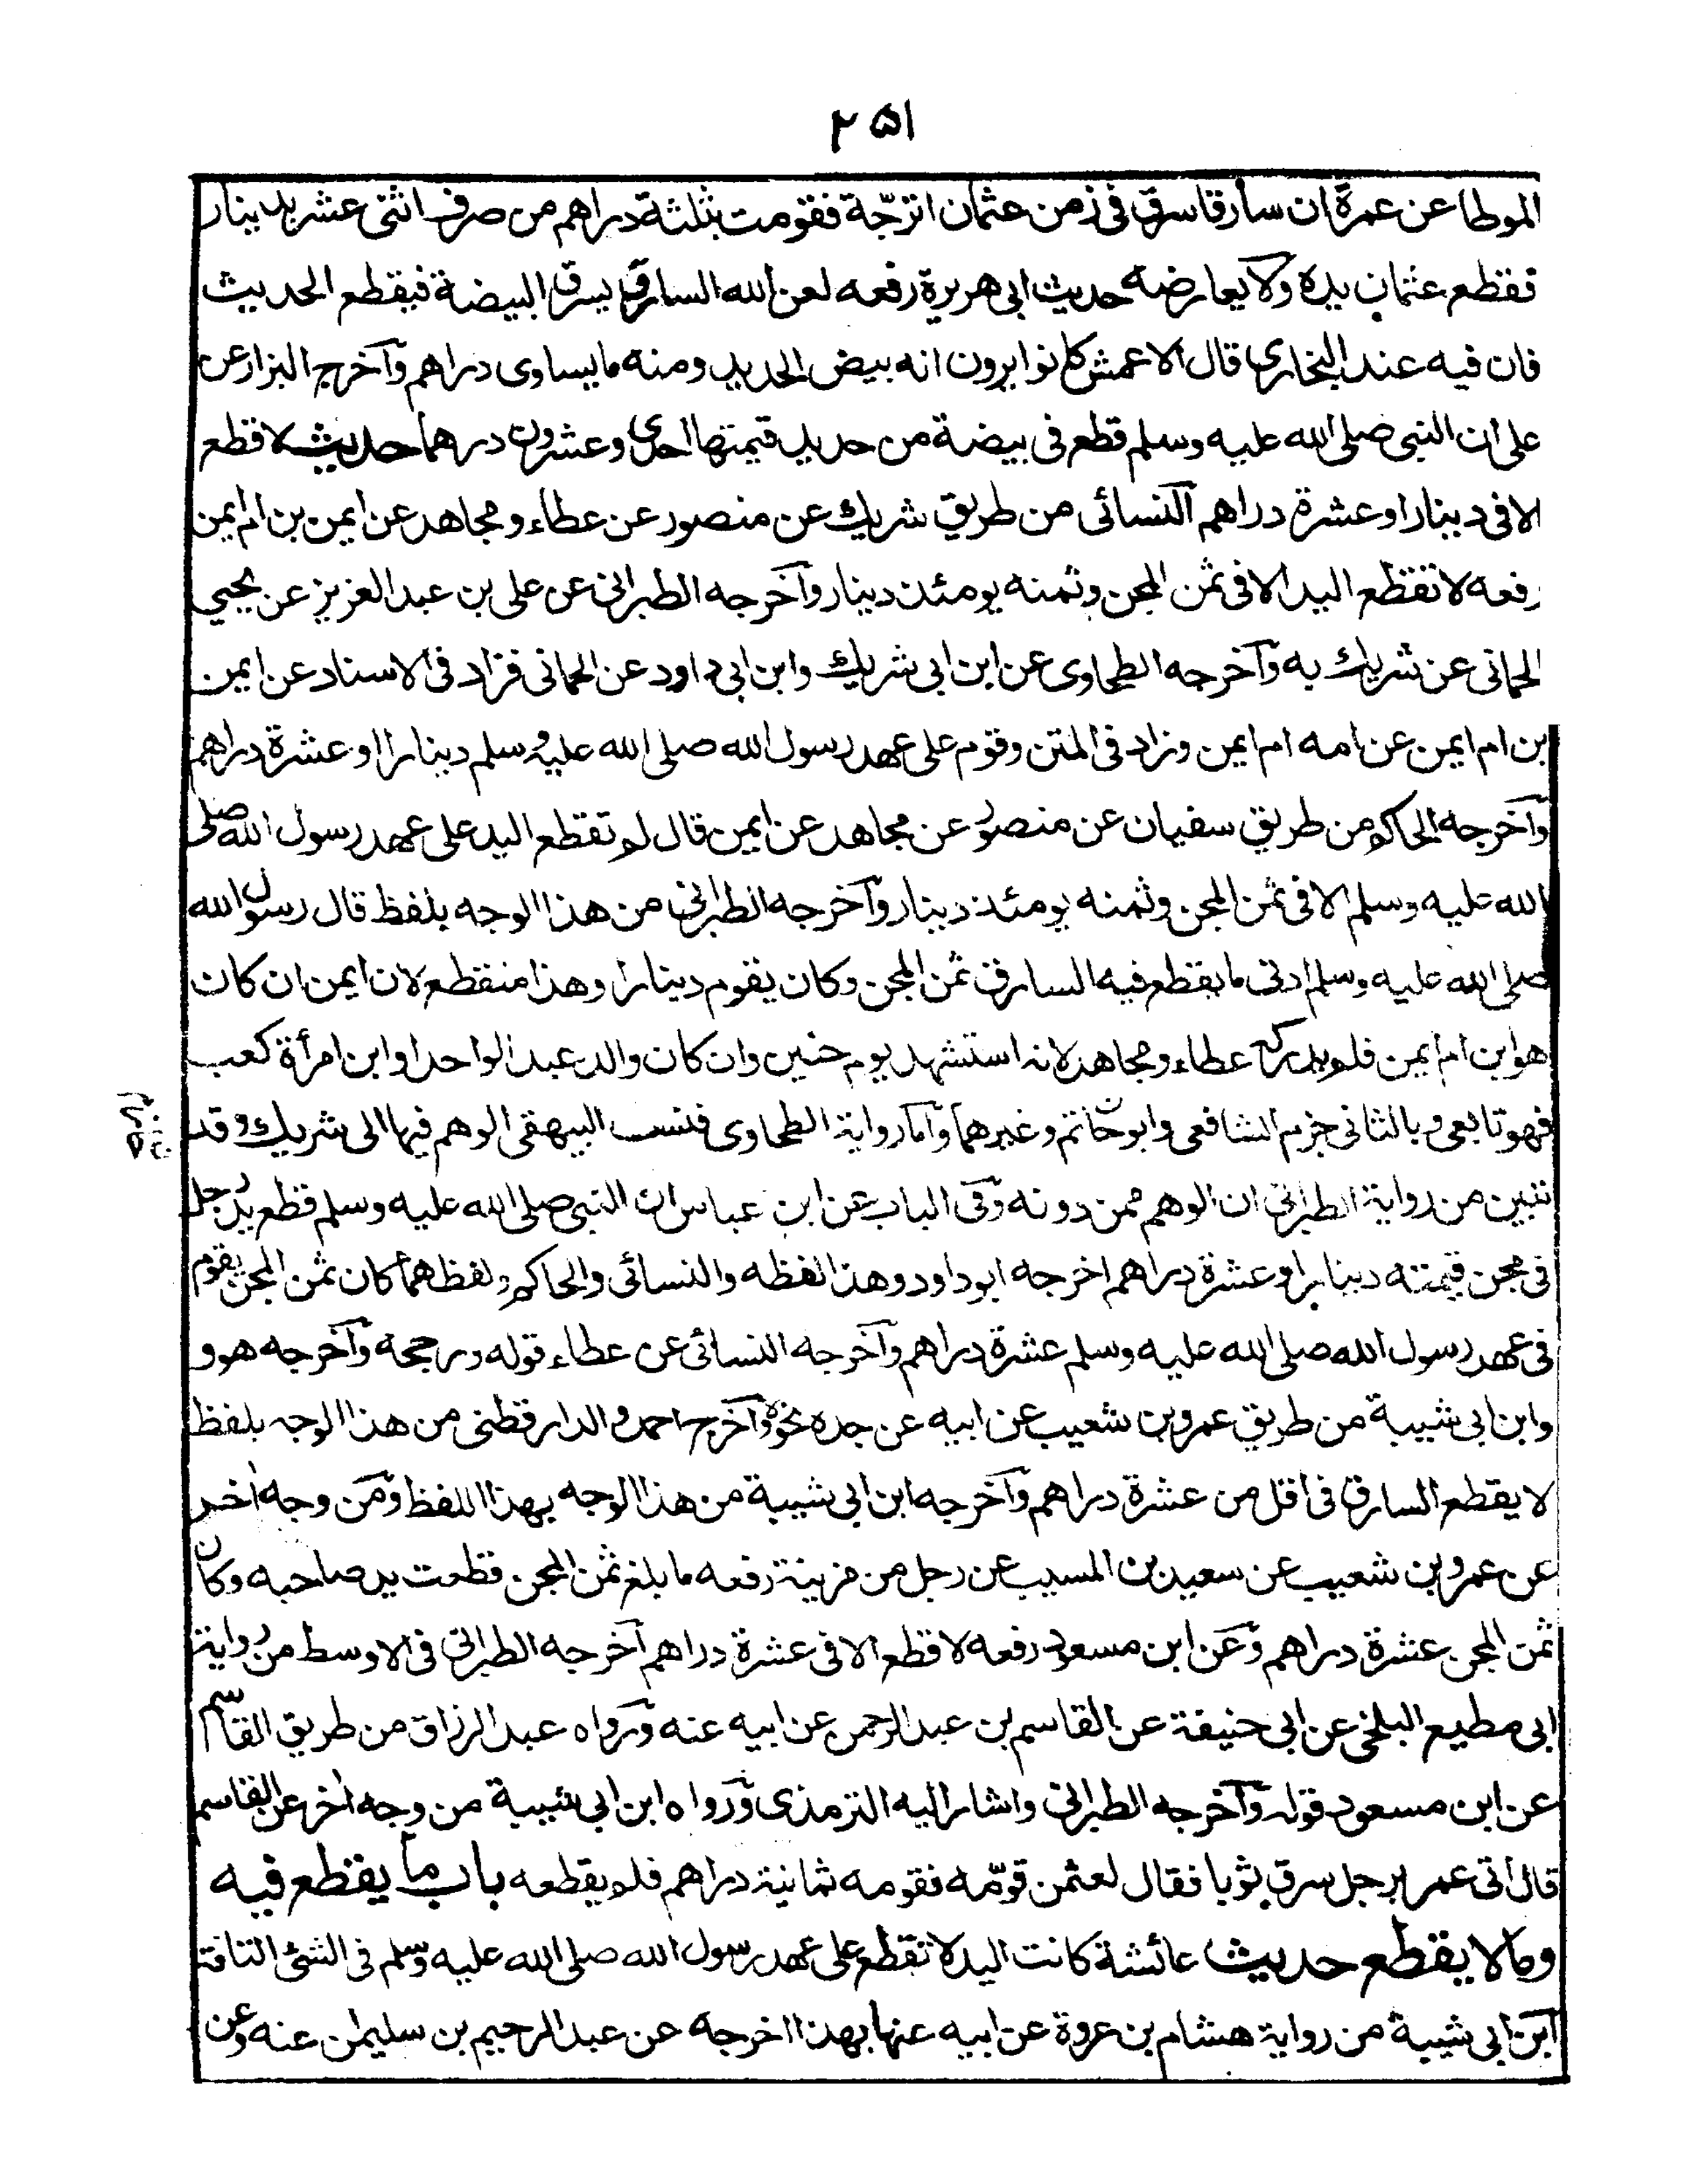 ٢٥١
الموطا عن عمرة ان سارقا سرق فى زمن عثمان اترجّة فقومت بثلثة دراهم من صرف اثنى عشر بدينار
فقطع عثمان يده ولا يعارضه حديث ابى هريرة رفعه لعن الله السارق يسرق البيضة فيقطع الحديث
فان فيه عند البخارى قال الاعمش كانوا يرون انه بيض الحديد ومنه ما يساوى دراهم وآخرج البزار عن
على ان النبى صلى الله عليه وسلم قطع فى بيضة من حديد قيمتها احدى وعشرون درهما حديث لا قطع
الا فى دينار او عشرة دراهم النسائى من طريق شريك عن منصور عن عطاء ومجاهد عن ايمن بن ام ايمن
رفعه لا تقطع اليد الا فى ثمن المجن وثمنه يومئذ دينار وآخرجه الطبرانى عن على بن عبد العزيز عن يحيى
الحمانى عن شريك به وآخرجه الطحاوى عن ابن ابى شريك وابن ابى داود عن الحمانى فزاد فى الاسناد عن ايمن
بن ام ايمن عن امه ام ايمن وزاد فى المتن وقوم على عهد رسول الله صلى الله عليه وسلم دينارا او عشرة دراهم
وآخرجه الحاكم من طريق سفيان عن منصور عن مجاهد عن ايمن قال لم تقطع اليد على عهد رسول الله صلى
الله عليه وسلم الا فى ثمن المجن وثمنه يومئذ دينار وآخرجه الطبرانى من هذا الوجه بلفظ قال رسول الله
صلى الله عليه وسلم ادنى ما يقطع فيه السارق ثمن المجن وكان يقوم دينارا وهذا منقطع لان ايمن ان كان
هو ابن ام ايمن فلم يدركه عطاء ومجاهد لانه استشهد يوم حنين وان كان والد عبد الواحد او ابن امرأة كعب
فهو تابعى وبالثانى جزم الشافعى وابو حاتم وغيرهما وآما رواية الطحاوى فنسب البيهقى الوهم فيها الى شريك وقد
تبين من رواية الطبرانى ان الوهم ممن دونه وفى الباب عن ابن عباس ان النبى صلى الله عليه وسلم قطع يد رجل
فى مجن قيمته دينار او عشرة دراهم اخرجه ابو داود وهذا لفظه والنسائى والحاكم ولفظهما كان ثمن المجن يقوم
فى عهد رسول الله صلى الله عليه وسلم عشرة دراهم وآخرجه النسائى عن عطاء قوله ورجحه وآخرجه هو و
وابن ابى شيبة من طريق عمرو بن شعيب عن ابيه عن جده نحوه وآخرج احمد والدارقطنى من هذا الوجه بلفظ
لا يقطع السارق فى اقل من عشرة دراهم وآخرجه ابن ابى شيبة من هذا الوجه بهذا اللفظ ومن وجه اخر
عن عمرو بن شعيب عن سعيد بن المسيب عن رجل من مزينة رفعه ما بلغ ثمن المجن قطعت يد صاحبه وكان
ثمن المجن عشرة دراهم وعن ابن مسعود رفعه لا قطع الا فى عشرة دراهم آخرجه الطبرانى فى الاوسط من رواية
ابى مطيع البلخى عن ابى حنيفة عن القاسم بن عبد الرحمن عن ابيه عنه ورواه عبد الرزاق من طريق القاسم
عن ابن مسعود قوله وآخرجه الطبرانى واشار اليه الترمذى ورواه ابن ابى شيبة من وجه اخر عن القاسم
قال اتى عمر برجل سرق ثوبا فقال لعثمن قوّمه فقومه ثمانية دراهم فلم يقطعه باب ما يقطع فيه
وما لا يقطع حديث عائشة كانت اليد لا تقطع على عهد رسول الله صلى الله عليه وسلم فى الشئ التافه
ابن ابى شيبة من رواية هشام بن عروة عن ابيه عنها بهذا اخرجه عن عبد الرحيم بن سليمن عنه وعن